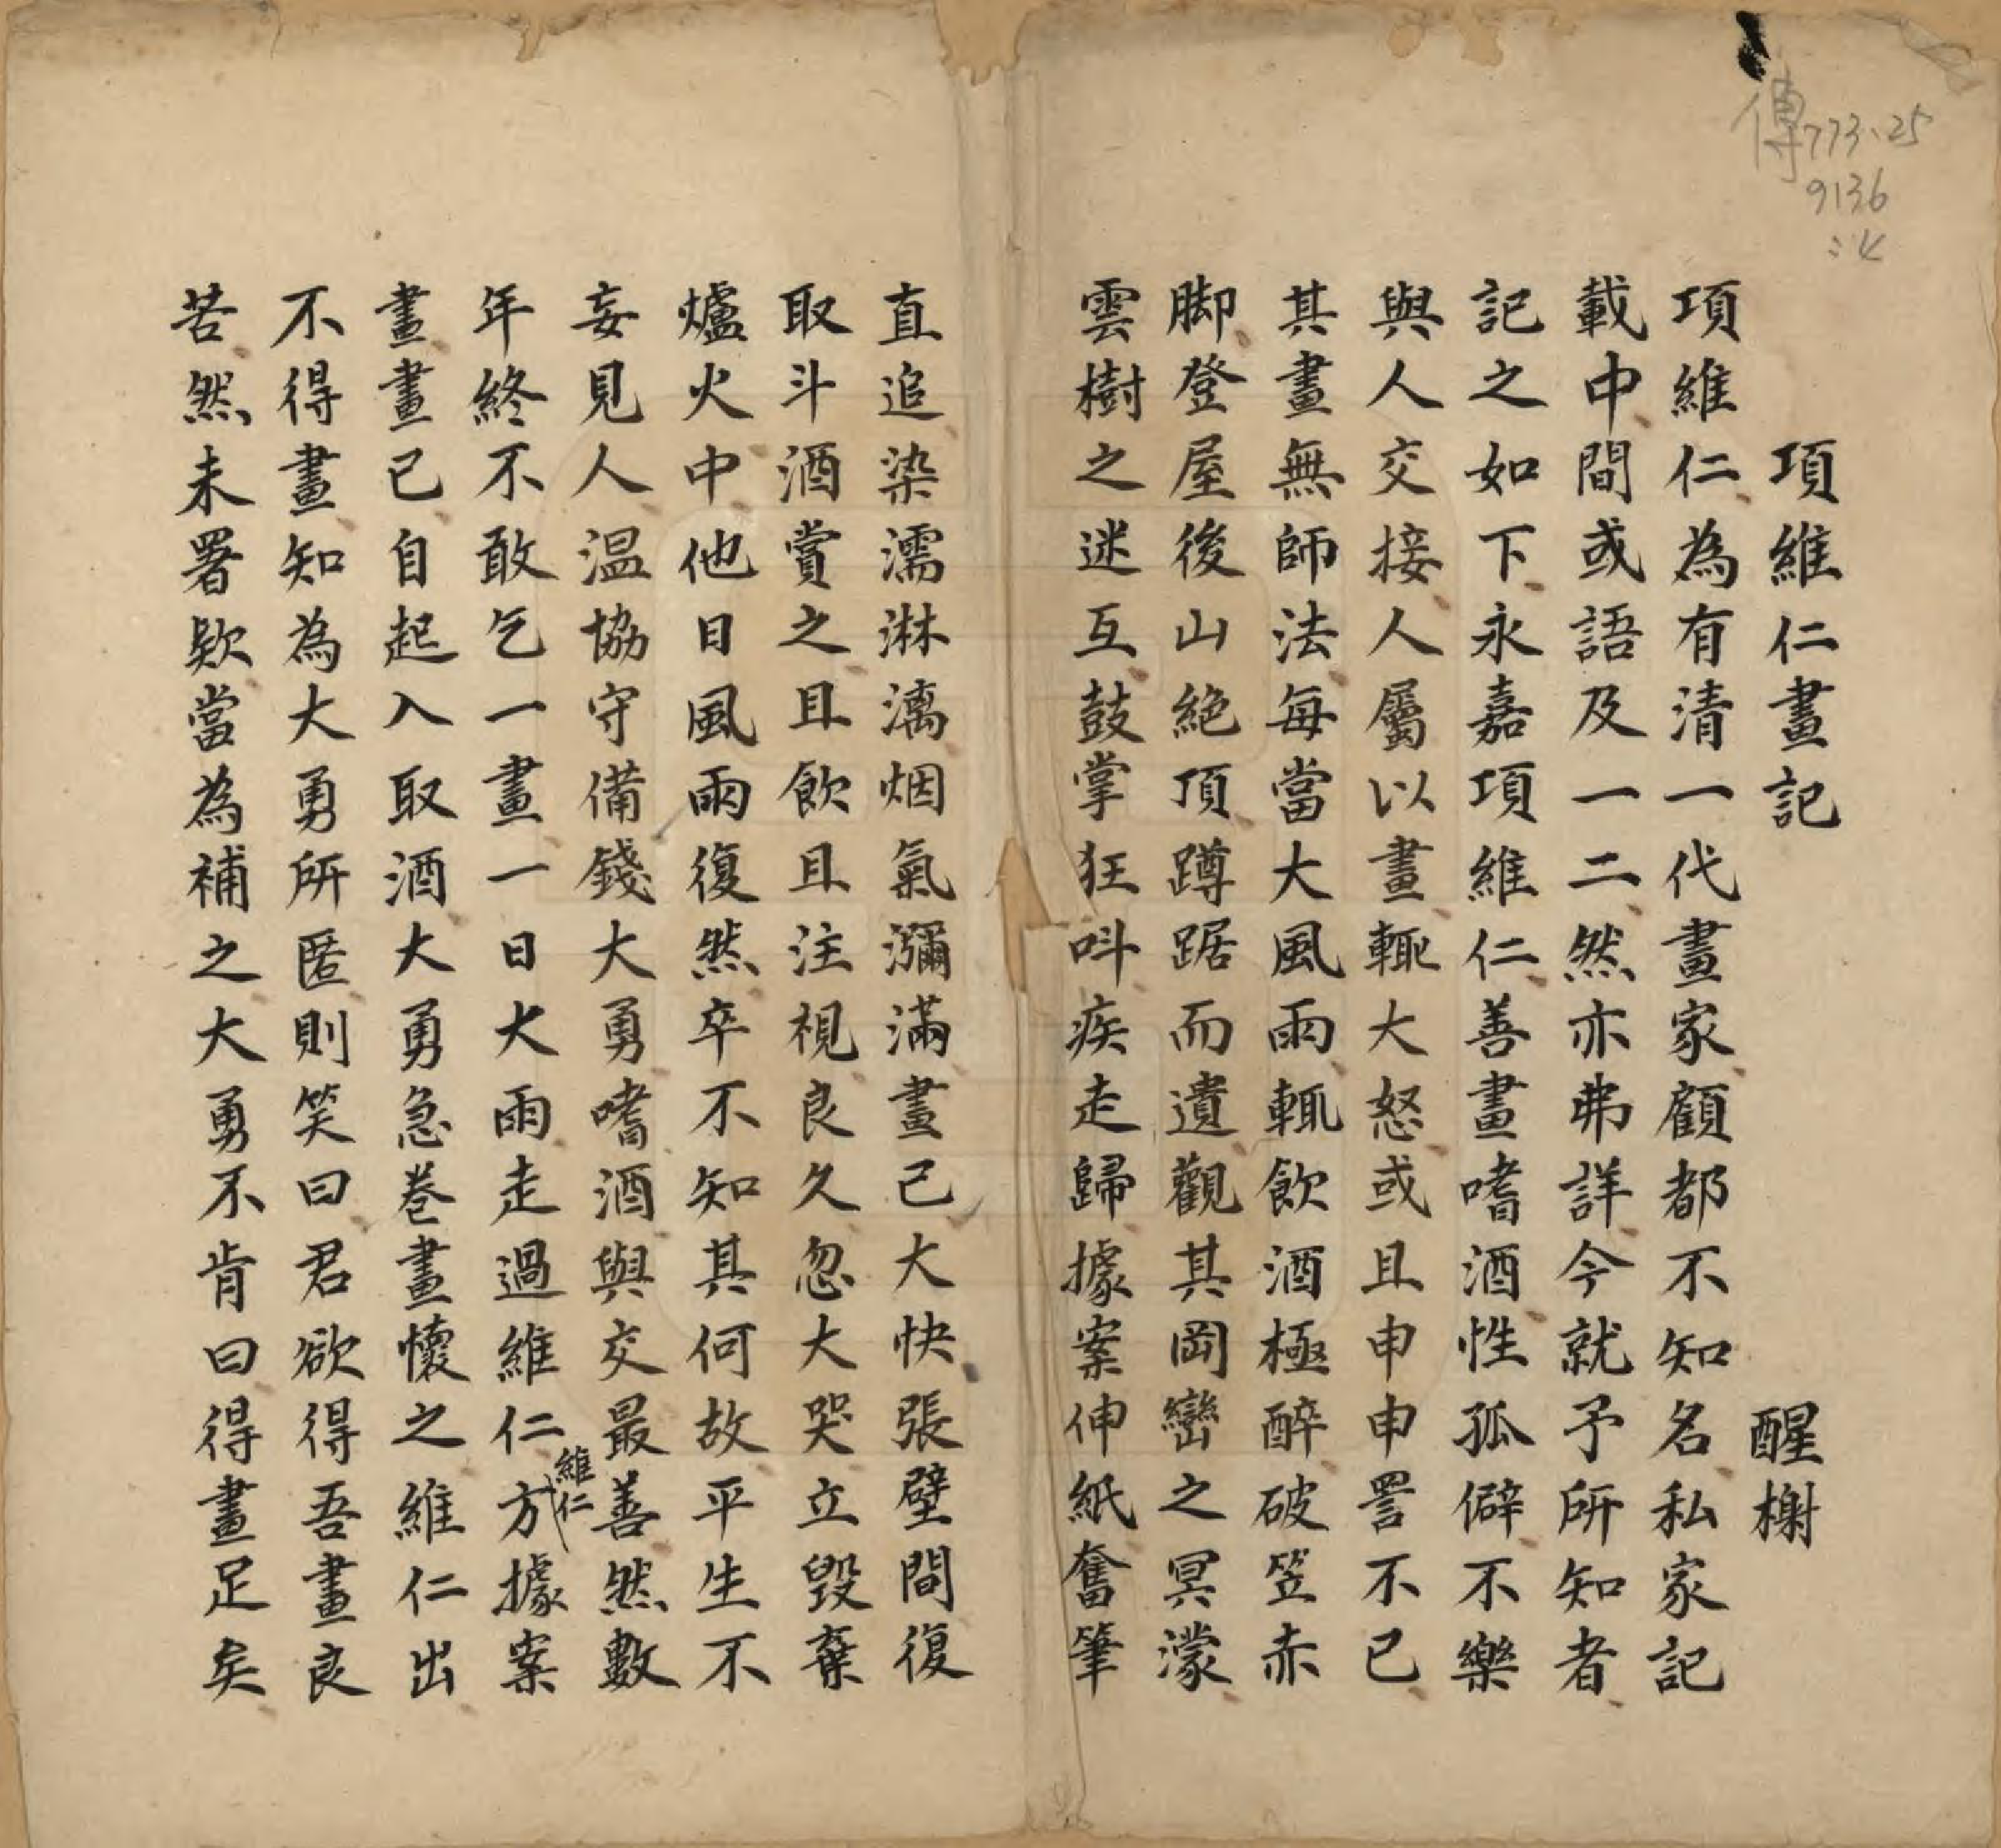 傳773.25
9136
:4
項維仁畫記 醒榭
項維仁為有清一代畫家顧都不知名私家記
載中間或語及一二然亦弗詳今就予所知者
記之如下永嘉項維仁善畫嗜酒性孤僻不樂
與人交接人屬以畫輒大怒或且申申詈不已
其畫無師法每當大風雨輒飲酒極醉破笠赤
脚登屋後山絕頂蹲踞而遺觀其岡巒之冥濛
雲樹之迷互鼓掌狂呌疾走歸據案伸紙奮筆
直追染濡淋漓烟氣瀰滿畫已大快張壁間復
取斗酒賞之且飲且注視良久忽大哭立毀棄
爐火中他日風雨復然卒不知其何故平生不
妄見人温協守備錢大勇嗜酒與交最善然數
年終不敢乞一畫一日大雨走過維仁維仁方據案
畫畫已自起入取酒大勇急卷畫懷之維仁出
不得畫知為大勇所匿則笑曰君欲得吾畫良
苦然未署欵當為補之大勇不肯曰得畫足矣